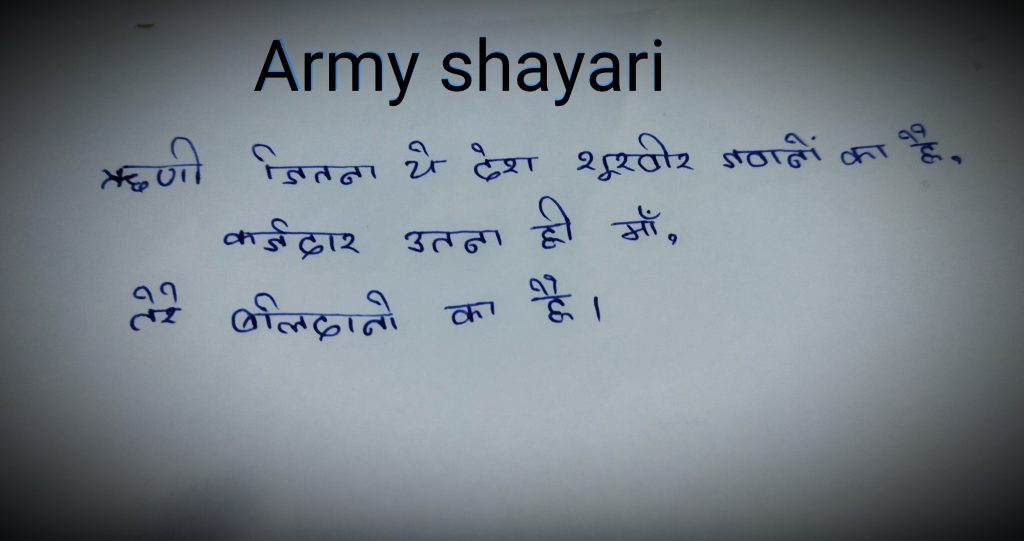 Army shayari
ऋणी जितना ये देश शूरवीर जवानों का है,
कर्जदार उतना ही माँ,
तेरे बलिदानो का है।